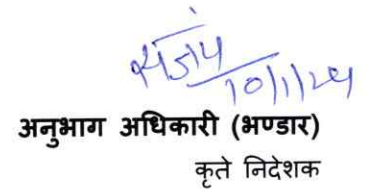 10/1/24
अनुभाग अधिकारी (भण्डार)
कृते निदेशक